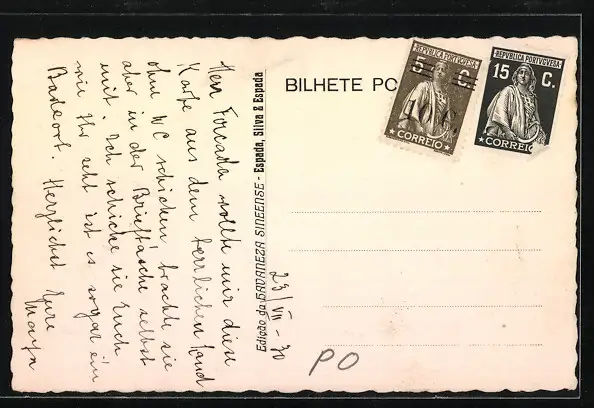 Herr Forcada wollte mir diese
Karte aus dem herrlichen Land
ohne WC schicken brachte sie
aber in der Brieftasche selbst
mit. Ich schicke sie Euch
wie Ihr seht ist es sogar ein
Badeort. Herzlichst Eure
Maya
Edição da HAVANEZA SINEENSE - Espada, Silva & Espada
23/VII - 30
BILHETE PO
REPUBLICA PORTUGUESA
5 C.
10 C.
CORREIO
REPUBLICA PORTUGUESA
15 C.
CORREIO
PO